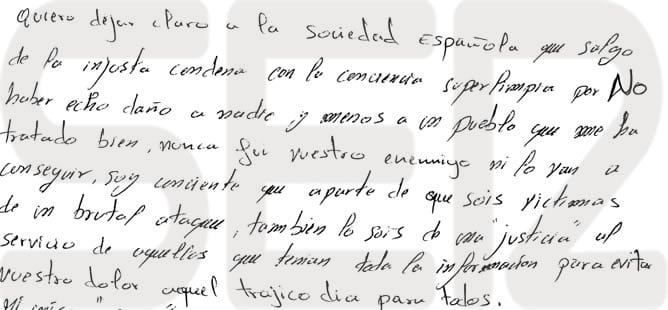 Quiero dejar claro a la sociedad Española que salgo
de la injusta condena con la conciencia superlimpia por No
haber echo daño a nadie y menos a un pueblo que me ha
tratado bien, nunca fui vuestro enemigo ni lo van a
conseguir, soy conciente que aparte de que sois victimas
de un brutal ataque, tambien lo sois de una "justicia" al
servicio de aquellos que tenian toda la informacion para evitar
vuestro dolor aquel trajico dia para todos.
SER